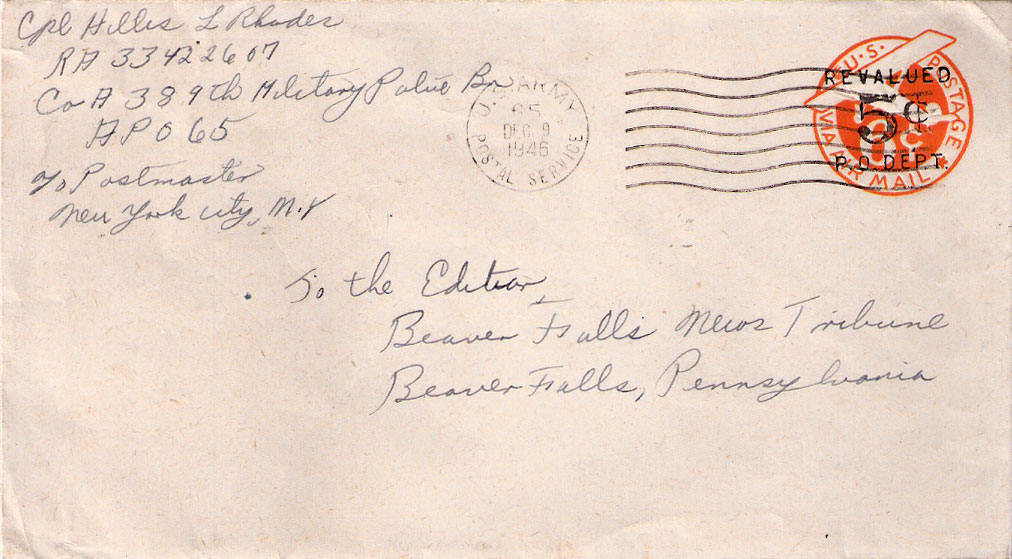 Cpl Hillis L Rhodes
RA 33422607
Co A 389th Military Police Bn
APO 65
c/o Postmaster
New York City, N.Y
U.S. ARMY
65
DEC 9
1946
POSTAL SERVICE
U.S. POSTAGE
REVALUED
5¢
P.O. DEPT.
VIA AIR MAIL
To the Editor,
Beaver Falls News Tribune
Beaver Falls, Pennsylvania